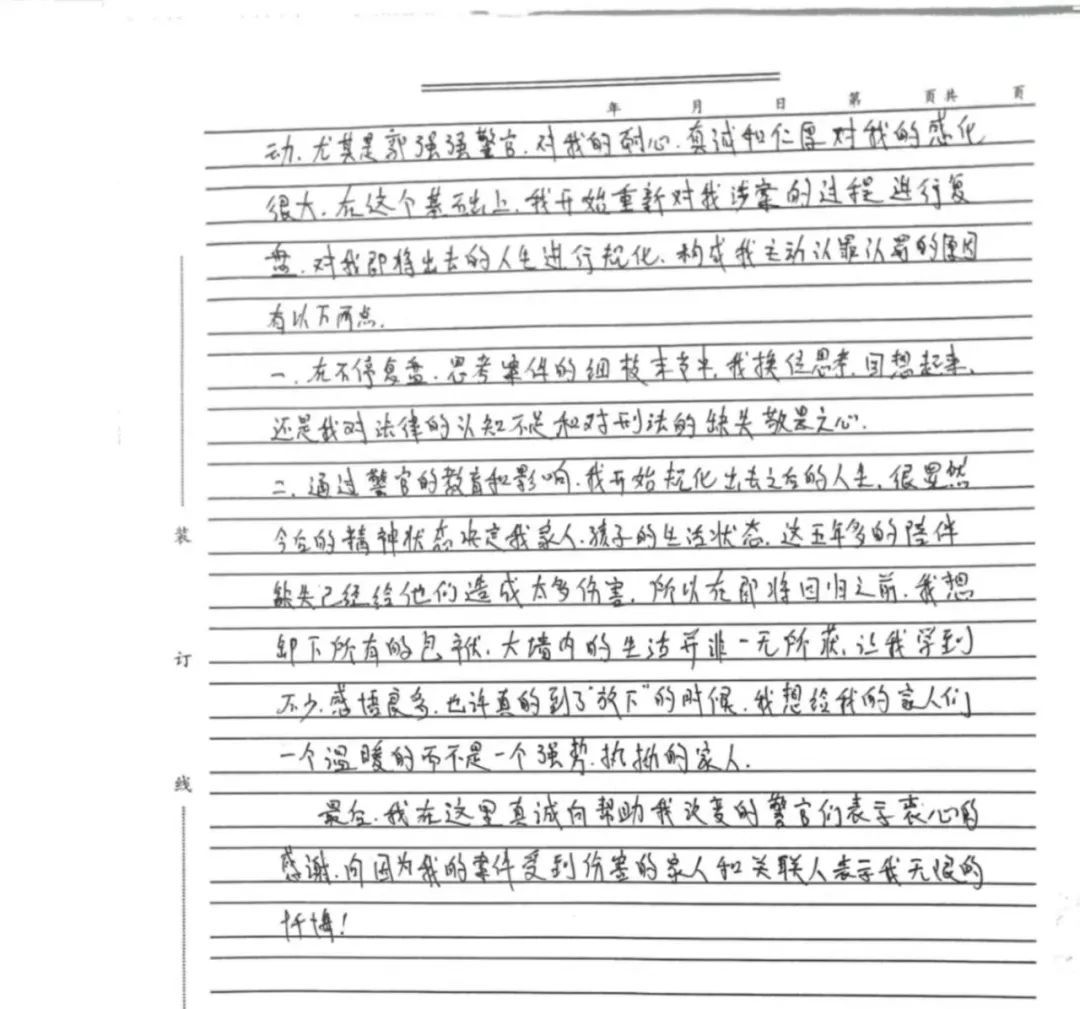 年 月 日 第 页共 页
动。尤其是郭强强警官，对我的耐心、真诚和仁厚对我的感化
很大。在这个基础上，我开始重新对我涉案的过程进行复
盘，对我即将出去的人生进行规化。构成我主动认罪认罚的原因
有以下两点。
一、在不停复盘、思考案件的细枝末节中，我换位思考，回想起来，
还是我对法律的认知不足和对刑法的缺失敬畏之心。
二、通过警官的教育和影响，我开始规化出去之后的人生，很显然
今后的精神状态决定我家人、孩子的生活状态，这五年多的陪伴
缺失已经给他们造成太多伤害，所以在即将回归之前，我想
卸下所有的包袱，大墙内的生活并非一无所获，让我学到
不少，感悟良多，也许真的到了“放下”的时候，我想给我的家人们
一个温暖的而不是一个强势、执拗的家人。
最后，我在这里真诚向帮助我改变的警官们表示衷心的
感谢，向因为我的案件受到伤害的家人和关联人表示我无限的
忏悔！
装
订
线